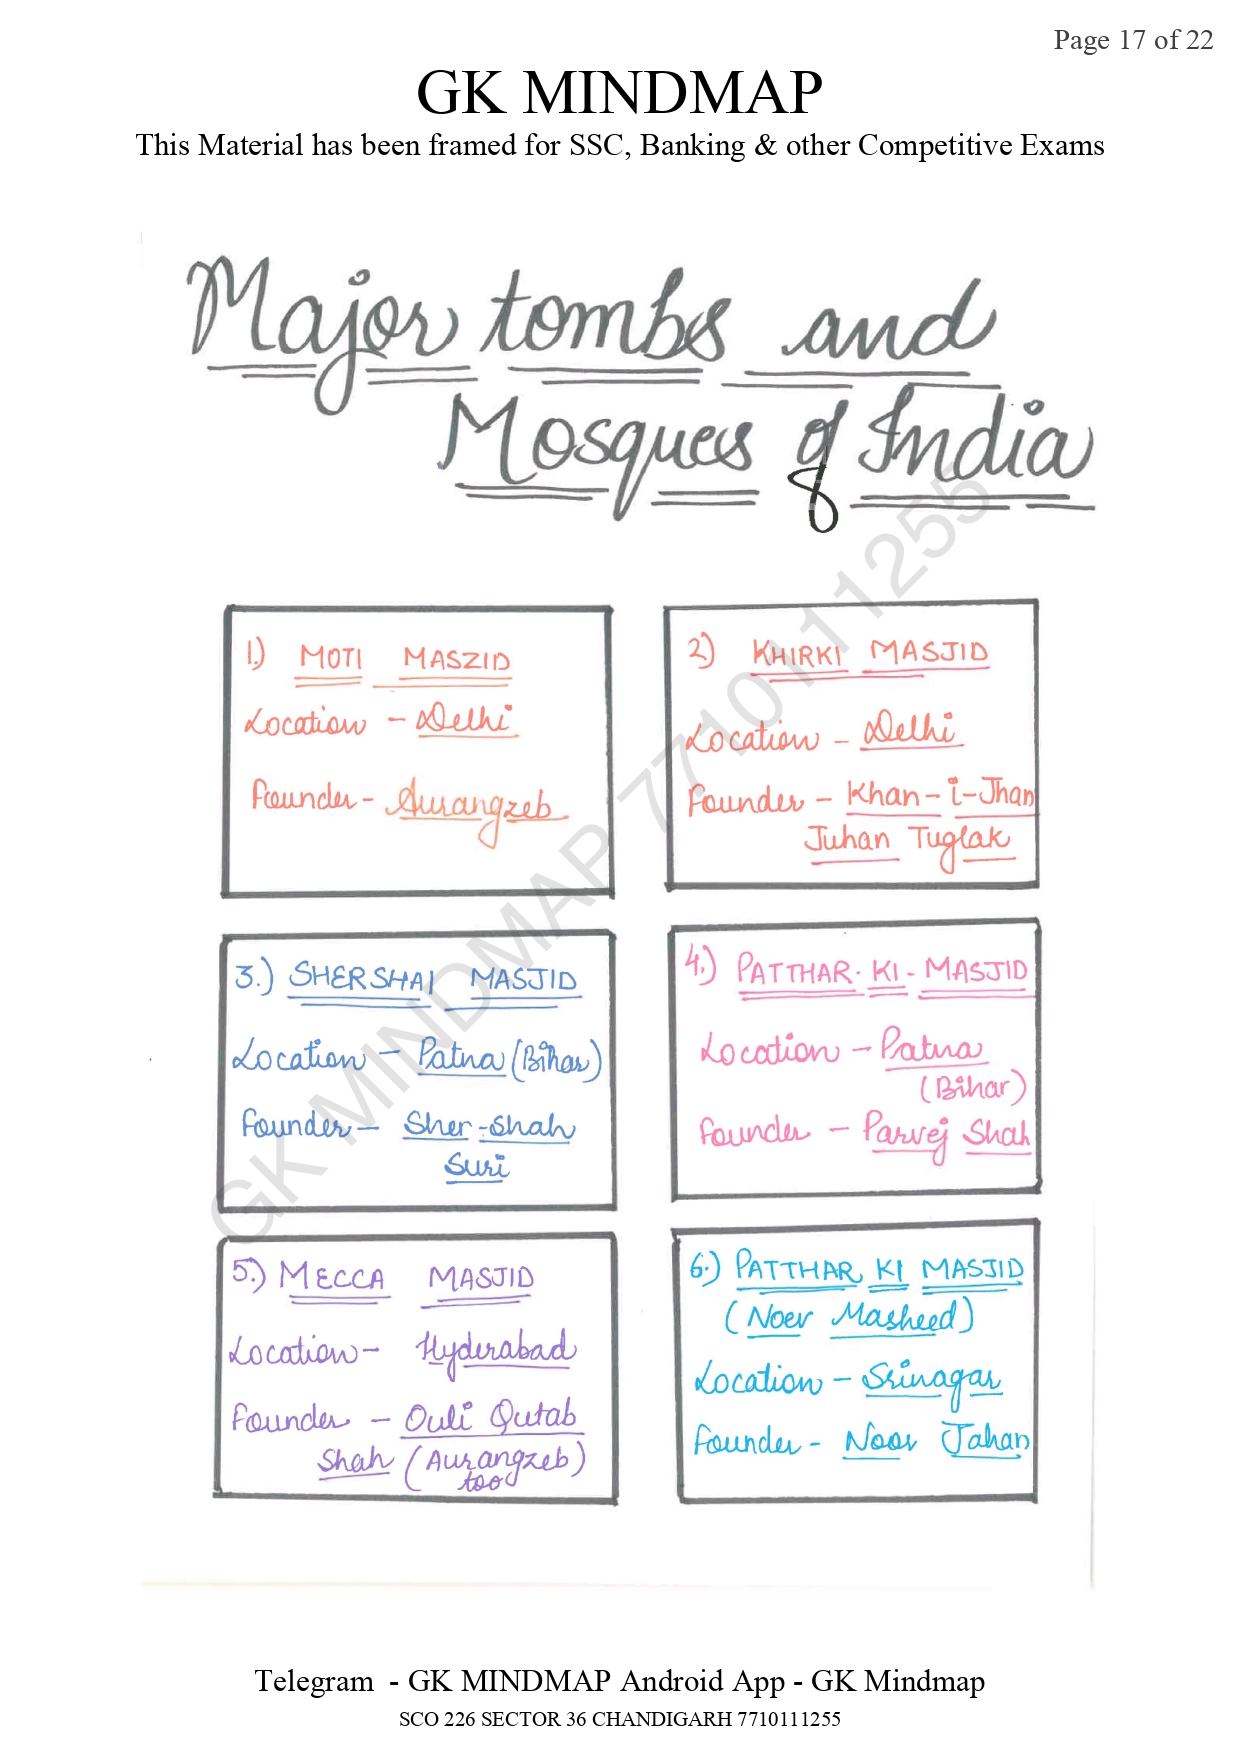 Page 17 of 22
GK MINDMAP
This Material has been framed for SSC, Banking & other Competitive Exams
Major tombs and
Mosques of India
1.) MOTI MASZID
Location - Delhi
Founder - Aurangzeb
2) KHIRKI MASJID
Location - Delhi
Founder - Khan-i-Jhan
Juhan Tuglak
3.) SHERSHAI MASJID
Location - Patna (Bihar)
Founder - Sher-Shah
Suri
4.) PATTHAR-KI-MASJID
Location - Patna
(Bihar)
Founder - Parvej Shah
5.) MECCA MASJID
Location - Hyderabad
Founder - Ouli Qutab
Shah (Aurangzeb)
too
6.) PATTHAR KI MASJID
(Noer Masheed)
Location - Srinagar
Founder - Noor Jahan
GK MINDMAP 7710111255
Telegram - GK MINDMAP Android App - GK Mindmap
SCO 226 SECTOR 36 CHANDIGARH 7710111255